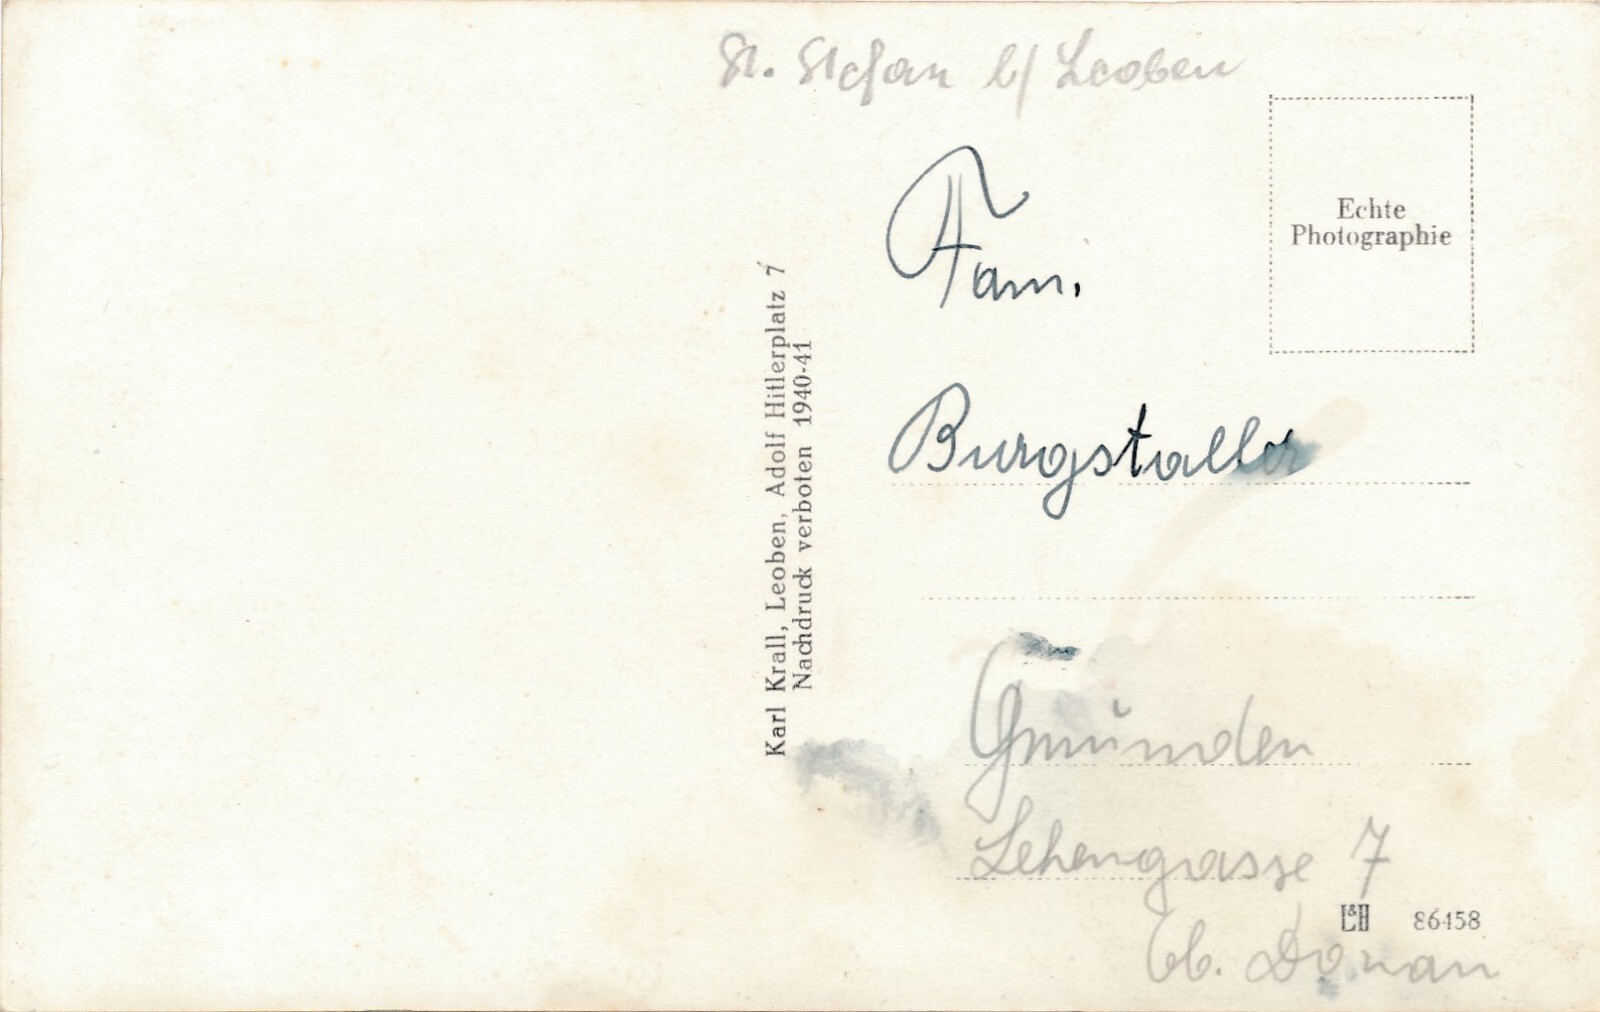 St. Stefan b/ Leoben
Echte
Photographie
Fam.
Burgstaller
Karl Krall, Leoben, Adolf Hitlerplatz 7
Nachdruck verboten 1940-41
Gmünden
Lehengasse 7
L&H 86458
Ob. Donau